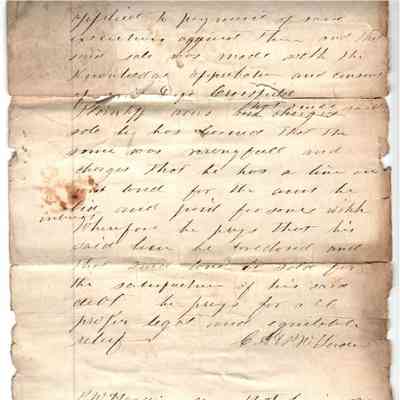 applied to payment of said
executions against them and that
said sale was made with the
Knowledge approbation and consent
of said Dept Critsfield
Plaintiff avers that since said
sole he has learned that the
same was wrongfull and
charges that he has a line on
said land for the amt he
bid and paid for same with
interest
Wherefore he prays that his
said lien be foreclosed and
that said land be sold for
the satisfaction of his said
debt he prays for all
proper legal and equitable
relief